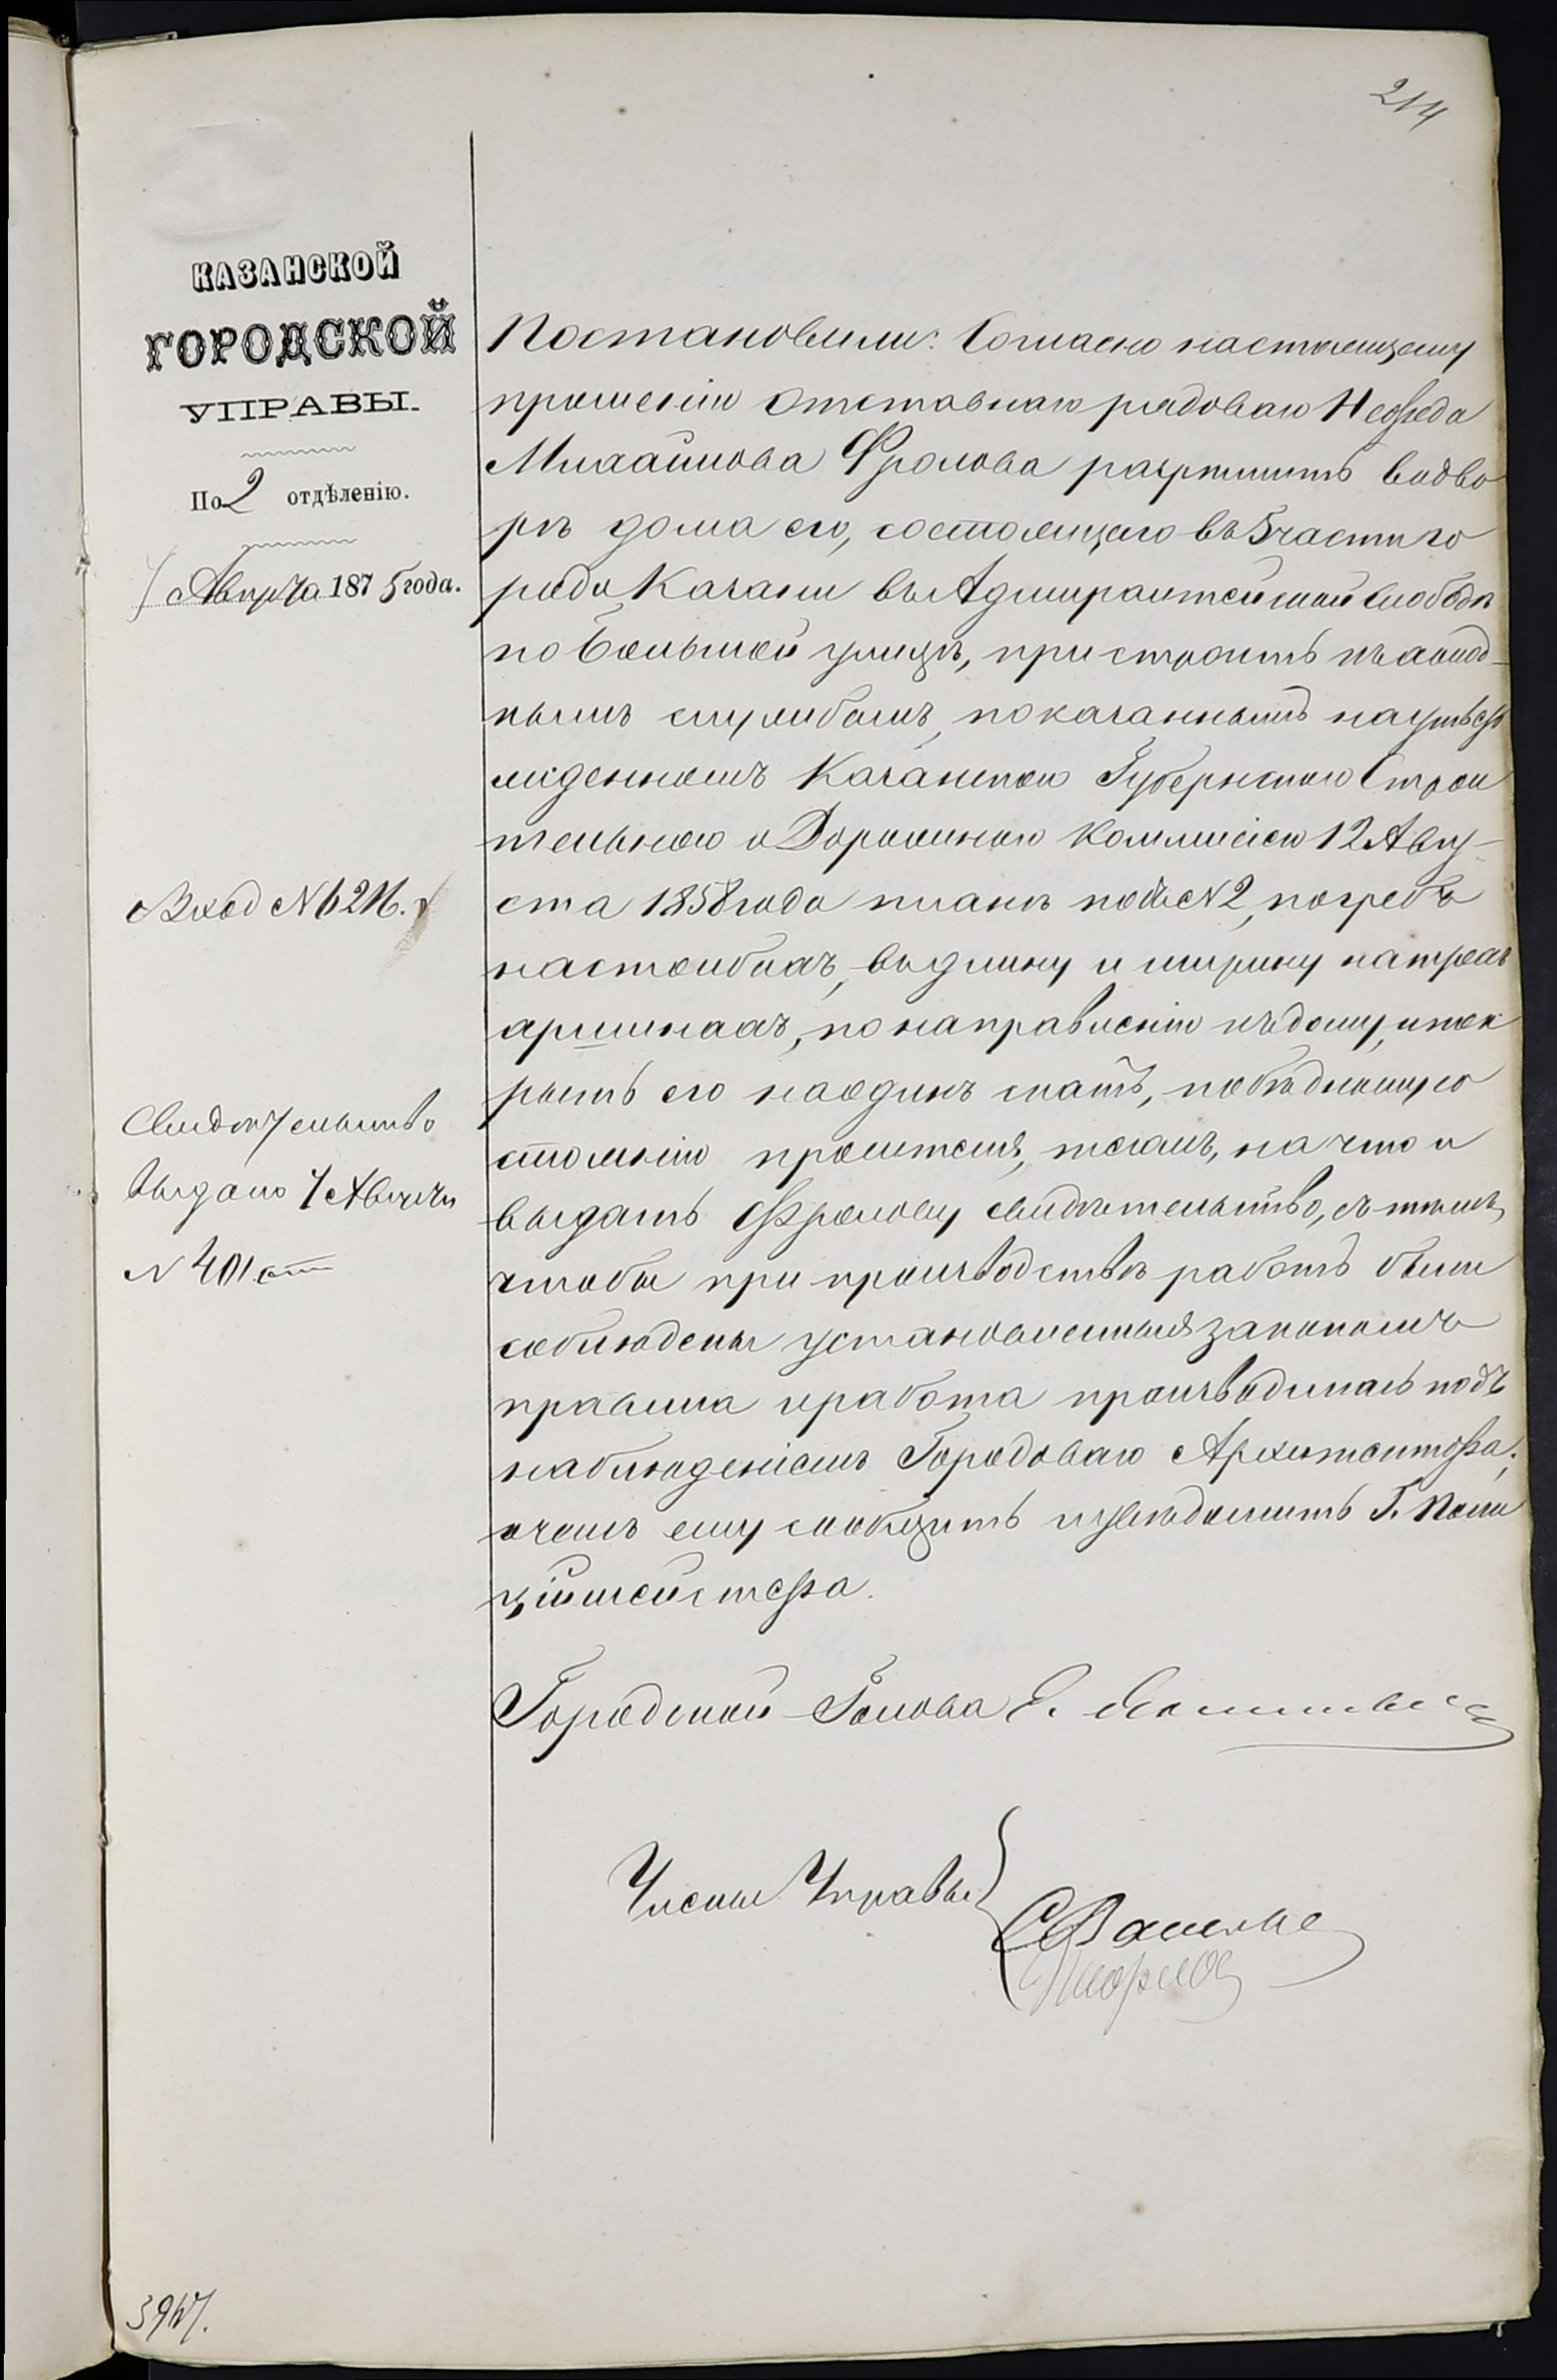 214
КАЗАНСКОЙ
ГОРОДСКОЙ
УПРАВЫ.
По 2 отдѣленію.
7 Августа 1875 года.
Вход № 6216.
Свидѣтельство
выдано 7 Августа
№ 401
Постановили: Согласно настоящему
прошенію отставнаго рядоваго Нефеда
Михайлова Фролова разрѣшить во дво
рѣ дома его, состоящаго въ 5 части го
рода Казани въ Адмиралтейской слободѣ
по Большой улицѣ, пристроить къ холод
нымъ службамъ, показаннымъ на утвер
жденномъ Казанскою Губернскою Строи
тельною и Дорожною Коммисіею 12 Авгу-
ста 1858 года планѣ подъ № 2, погребъ
на столбахъ, въ длину и ширину на трехъ
аршинахъ, по направленію къ дому, и пок
рыть его на одинъ скатъ,
просителя, тесомъ, на что и
выдать Фролову свидѣтельство, съ тѣмъ,
чтобы при производствѣ работъ были
соблюдены установленныя закономъ
правила и работа производилась подъ
наблюденіемъ Городоваго Архитектора,
о чемъ ему сообщить и увѣдомить Г. Поли
ціймейстера.
Городской Голова Е.
Члены Управы
3947.